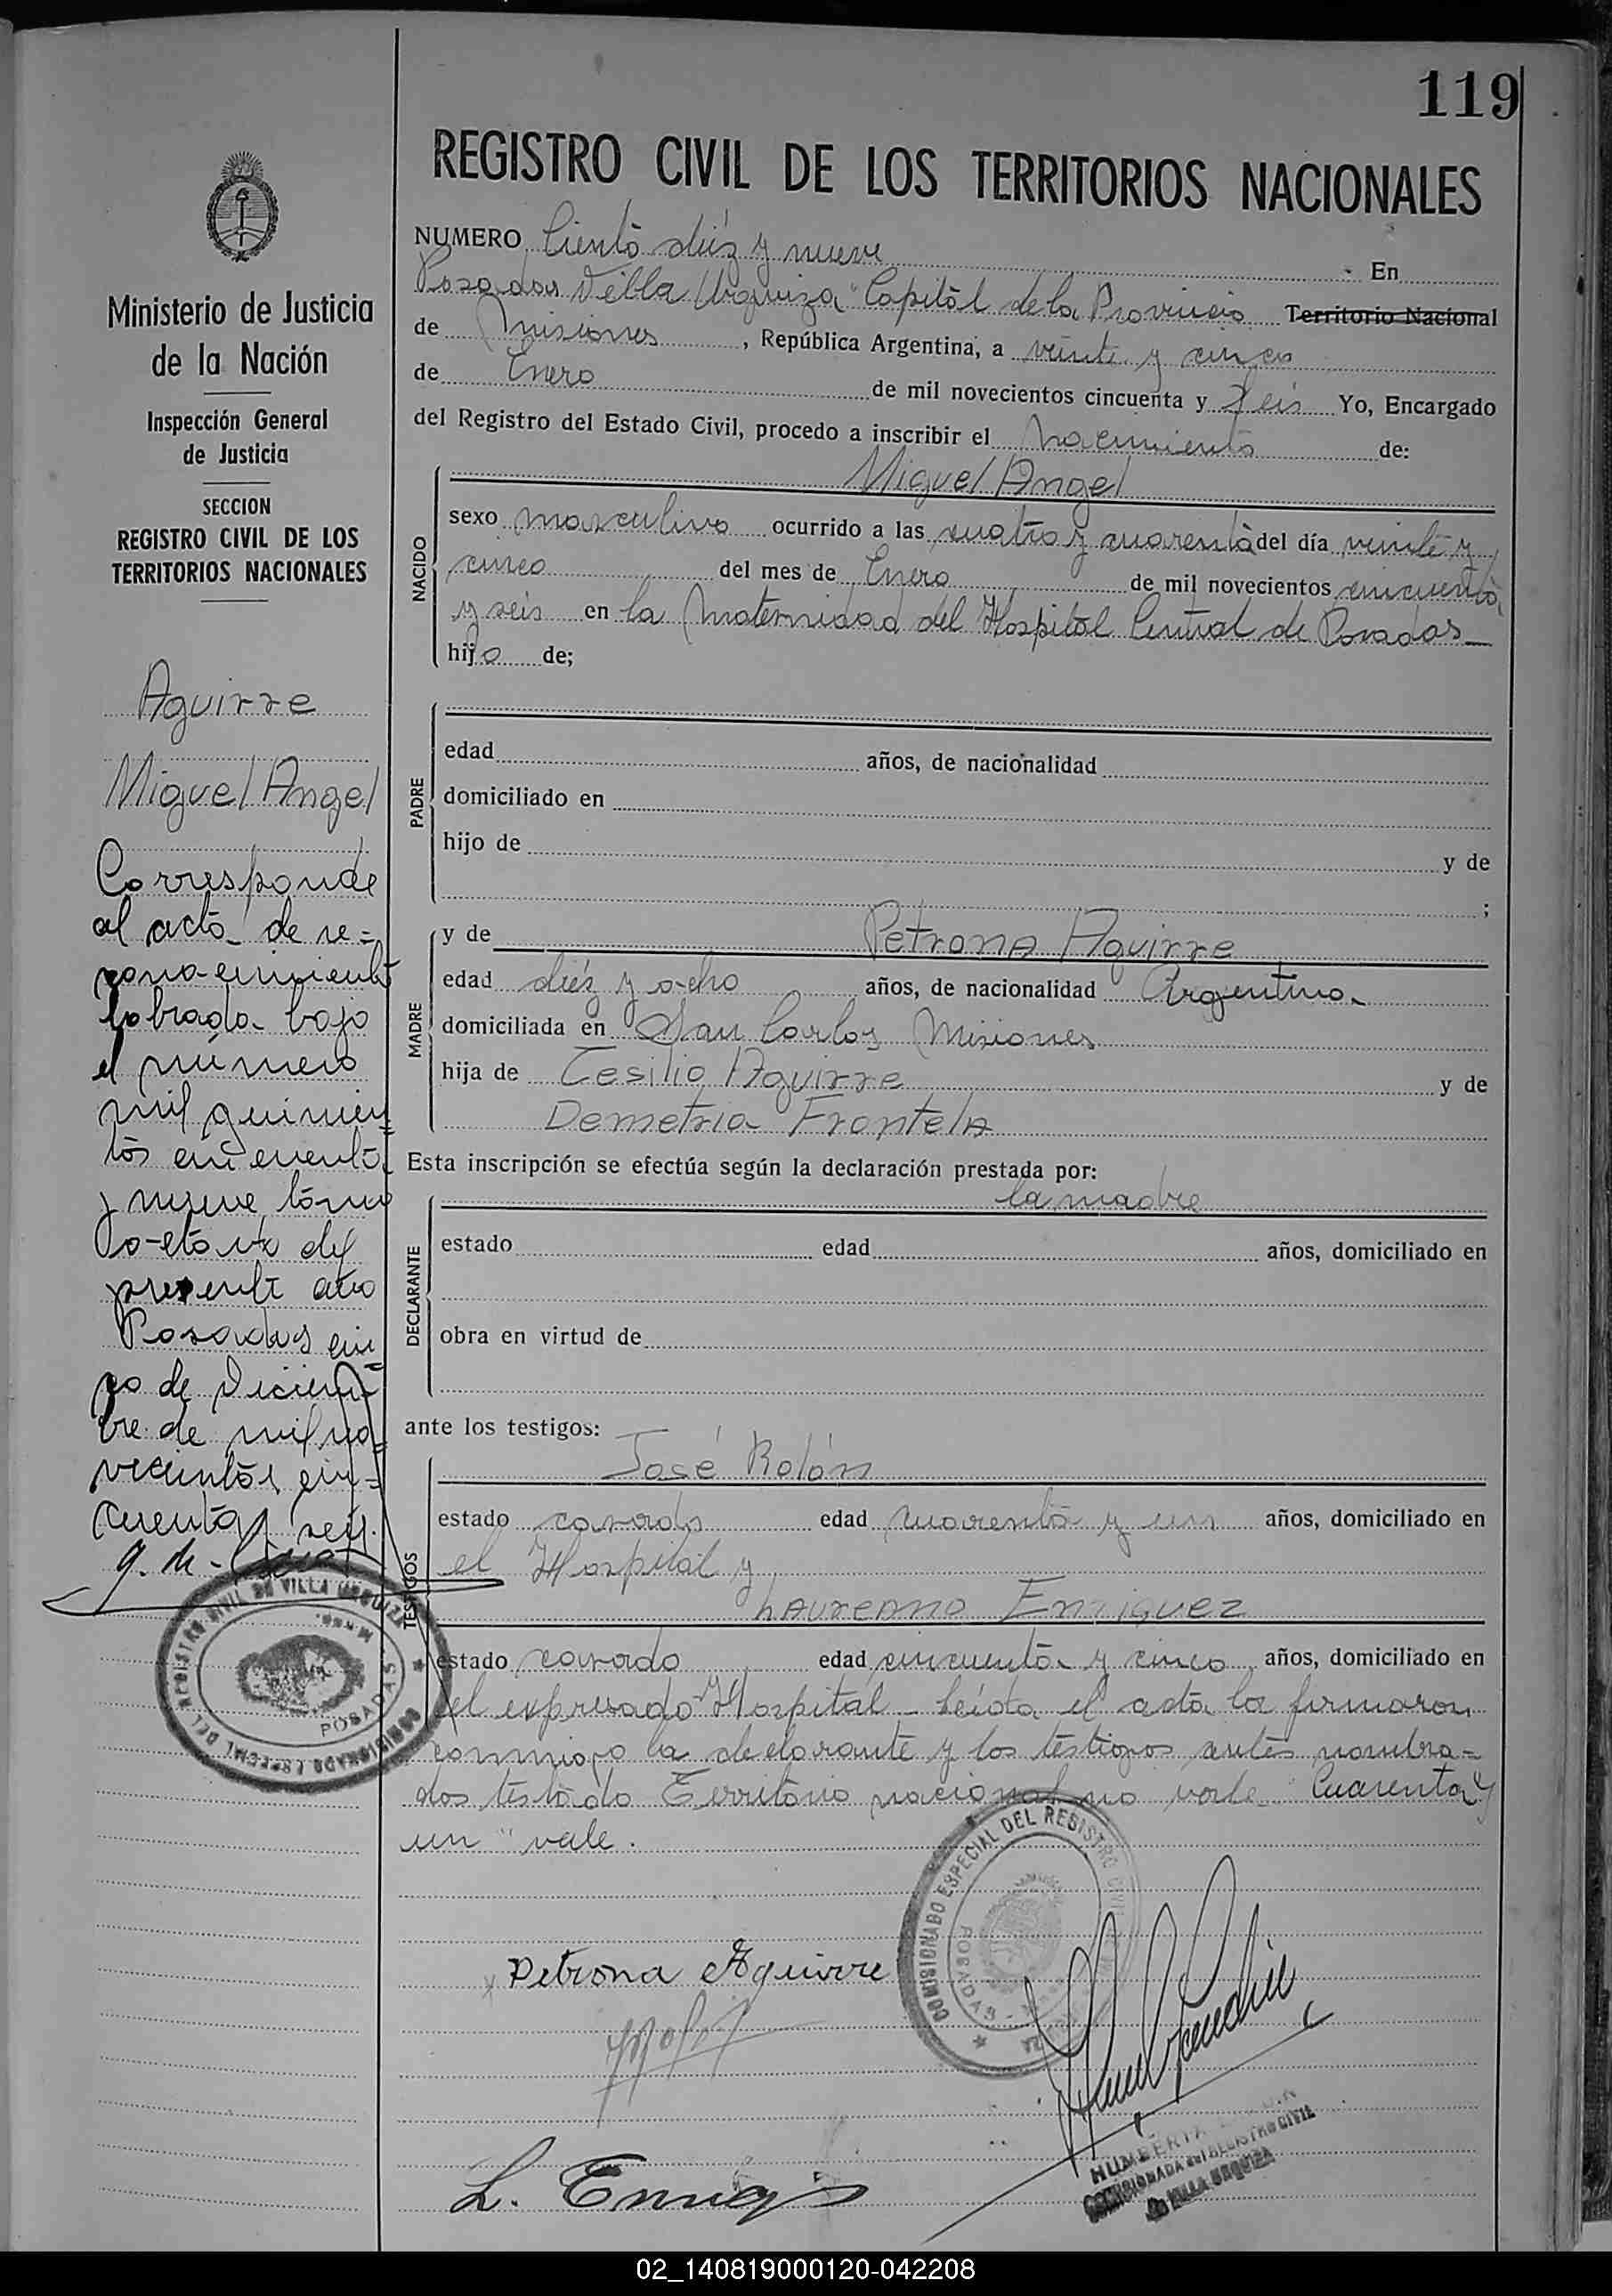 119
REGISTRO CIVIL DE LOS TERRITORIOS NACIONALES
NUMERO Ciento diéz y nueve En
Posadas Villa Urquiza Capital de la Provincia Territorio Nacional
de Misiones, República Argentina, a veinte y cinco
de Enero de mil novecientos cincuenta y Seis Yo, Encargado
del Registro del Estado Civil, procedo a inscribir el nacimiento de:
NACIDO
Miguel Angel
sexo masculino ocurrido a las cuatro y cuarenta del día veinte y
cinco del mes de Enero de mil novecientos cincuenta
y seis en la Maternidad del Hospital Central de Posadas
hijo de;
PADRE
edad años, de nacionalidad
domiciliado en
hijo de y de
;
MADRE
y de Petrona Aguirre
edad diéz y ocho años, de nacionalidad Argentina
domiciliada en San Carlos Misiones
hija de Cesilio Aguirre y de
Demetria Frontela
Esta inscripción se efectúa según la declaración prestada por:
DECLARANTE
la madre
estado edad años, domiciliado en
obra en virtud de
ante los testigos:
TESTIGOS
José Rolón
estado casado edad cuarenta y un años, domiciliado en
el Hospital y
Laureano Enriquez
estado casado edad cincuenta y cinco años, domiciliado en
el expresado Hospital Leída el acta la firmaron
conmigo la declarante y los testigos antes nombra=
dos testado Territorio nacional no vale Cuarenta y
un" vale.
Petrona Aguirre
COMISIONADO ESPECIAL DEL REGISTRO CIVIL
POSADAS
L.
HUMBERTA
COMISIONADA del REGISTRO CIVIL
de VILLA URQUIZA
Ministerio de Justicia
de la Nación
Inspección General
de Justicia
SECCION
REGISTRO CIVIL DE LOS
TERRITORIOS NACIONALES
Aguirre
Miguel Angel
Corresponde
al acta de re=
conocimiento
labrada bajo
el número
mil quinien=
tos cincuenta
y nueve tomo
octavo del
presente año
Posadas cin
co de Diciem=
bre de mil no=
vecientos cin=
cuenta y seis.
COMISIONADO ESPECIAL DEL REGISTRO CIVIL DE VILLA URQUIZA
POSADAS
02_140819000120-042208